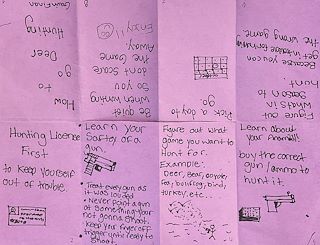 How
to
go
Deer
Hunting
Be quiet
when hunting
So you
dont scare
the Game
Away.
Enjoy!!
Pick a day to
go.
Figure out
whats in
season to
hunt
Because you can
get in trouble for hunting
the wrong game.
Hunting License
First
to keep yourself
out of trouble.
Learn your
Safety of a
gun.
• Treat every gun as
it was loaded
• Never point a gun
at something your
not gonna shoot.
Keep your finger off
trigger until ready to
shoot.
Figure out what
game you want to
Hunt for.
Example:
Deer, Bear, coyote,
fox, bird,
turkey, etc...
Learn about
your
buy the correct
gun / ammo to
hunt it.